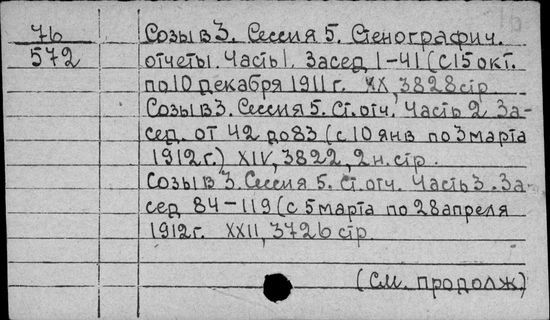 76
572
Созыв 3. Сессия 5. Стенографич.
отчеты. Часть 1. Засед. 1-41 (с 15 окт.
по 10 декабря 1911 г. XX, 3828 стр
Созыв 3. Сессия 5. Ст. отч. Часть 2 За-
сед. от 42 до 83 (с 10 янв по 3 марта
1912 г.) XIV, 3822, 2 н. стр.
Созыв 3. Сессия 5. Ст. отч. Часть 3. За-
сед 84-119 (с 5 марта по 28 апреля
1912 г. XXII, 3726 стр
(См. продолж)